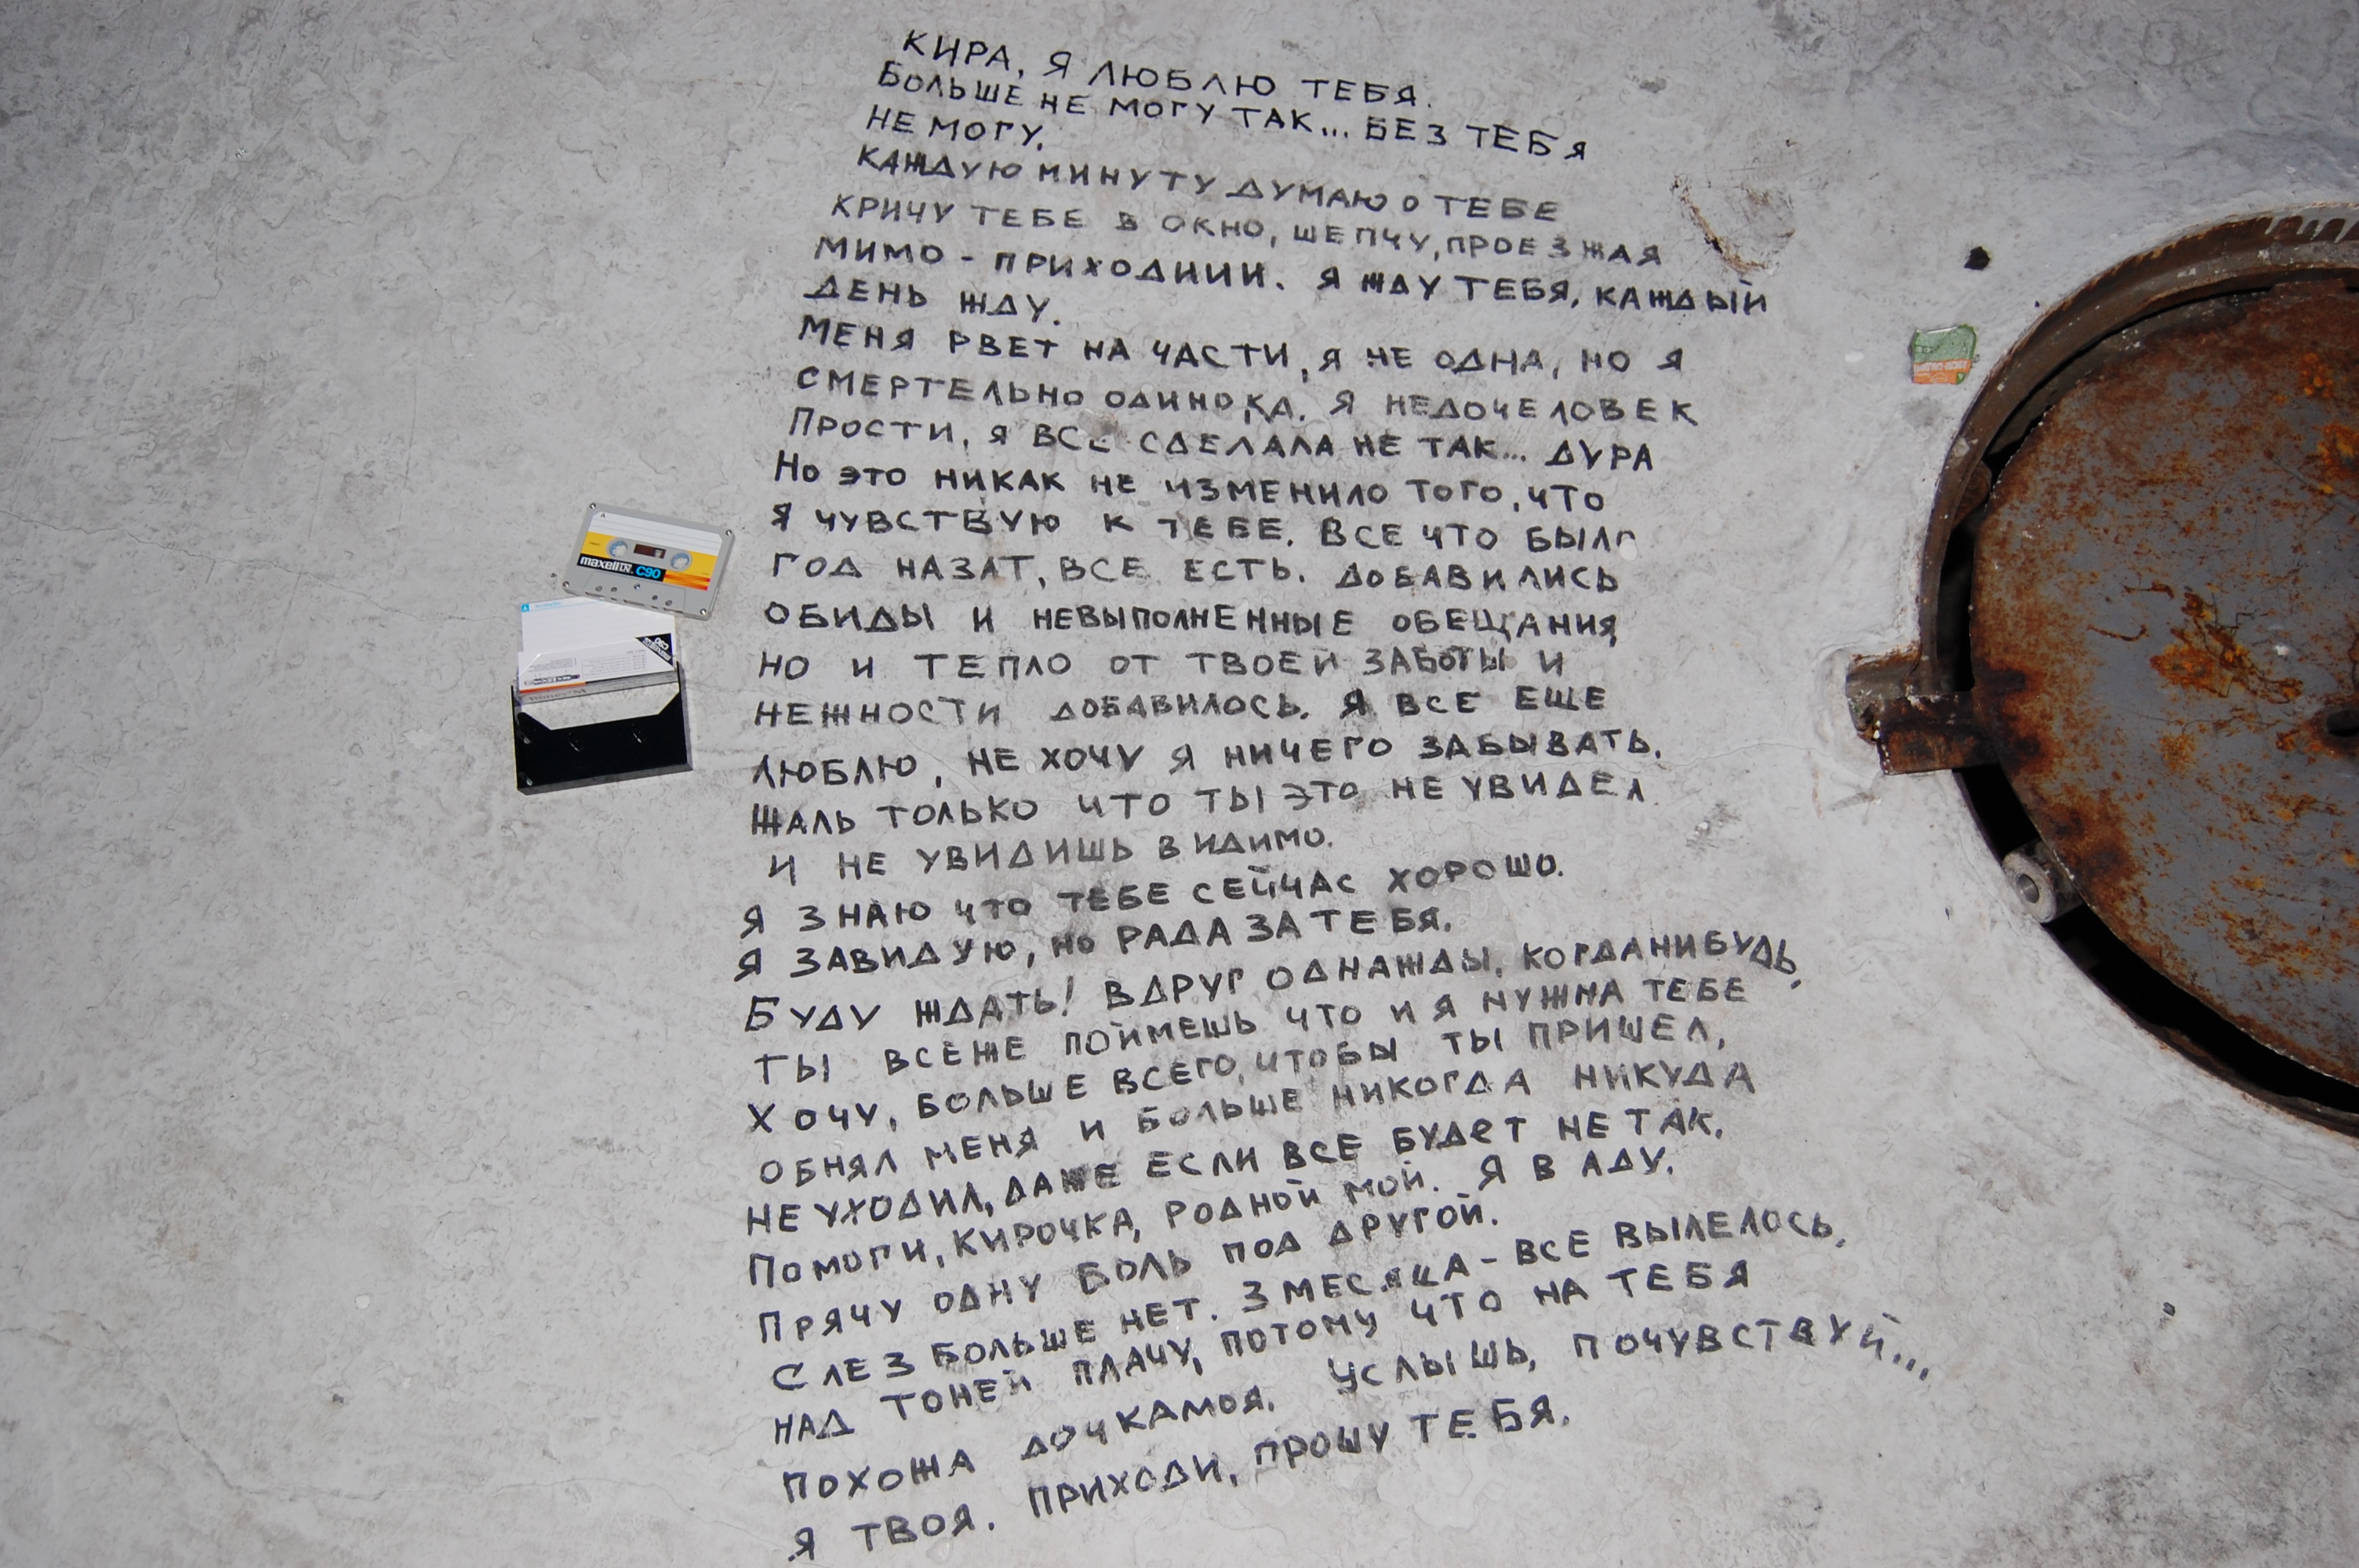 КИРА, Я ЛЮБЛЮ ТЕБЯ.
БОЛЬШЕ НЕ МОГУ ТАК... БЕЗ ТЕБЯ
НЕ МОГУ.
КАЖДУЮ МИНУТУ ДУМАЮ О ТЕБЕ
КРИЧУ ТЕБЕ В ОКНО, ШЕПЧУ, ПРОЕЗЖАЯ
МИМО - ПРИХОДИИИ. Я ЖДУ ТЕБЯ, КАЖДЫЙ
ДЕНЬ ЖДУ.
МЕНЯ РВЕТ НА ЧАСТИ, Я НЕ ОДНА, НО Я
СМЕРТЕЛЬНО ОДИНОКА. Я НЕДОЧЕЛОВЕК
ПРОСТИ, Я ВСЕ СДЕЛАЛА НЕ ТАК... ДУРА
НО ЭТО НИКАК НЕ ИЗМЕНИЛО ТОГО, ЧТО
Я ЧУВСТВУЮ К ТЕБЕ. ВСЕ ЧТО БЫЛО
ГОД НАЗАТ, ВСЕ ЕСТЬ. ДОБАВИЛИСЬ
ОБИДЫ И НЕВЫПОЛНЕННЫЕ ОБЕЩАНИЯ,
НО И ТЕПЛО ОТ ТВОЕЙ ЗАБОТЫ И
НЕЖНОСТИ ДОБАВИЛОСЬ. Я ВСЕ ЕЩЕ
ЛЮБЛЮ, НЕ ХОЧУ Я НИЧЕГО ЗАБЫВАТЬ.
ЖАЛЬ ТОЛЬКО ЧТО ТЫ ЭТО НЕ УВИДЕЛ
И НЕ УВИДИШЬ ВИДИМО.
Я ЗНАЮ ЧТО ТЕБЕ СЕЙЧАС ХОРОШО.
Я ЗАВИДУЮ, НО РАДА ЗА ТЕБЯ.
БУДУ ЖДАТЬ! ВДРУГ ОДНАЖДЫ, КОГДАНИБУДЬ,
ТЫ ВСЕЖЕ ПОЙМЕШЬ ЧТО И Я НУЖНА ТЕБЕ
ХОЧУ, БОЛЬШЕ ВСЕГО, ЧТОБЫ ТЫ ПРИШЕЛ,
ОБНЯЛ МЕНЯ И БОЛЬШЕ НИКОГДА НИКУДА
НЕ УХОДИЛ, ДАЖЕ ЕСЛИ ВСЕ БУДЕТ НЕ ТАК.
ПОМОГИ, КИРОЧКА, РОДНОЙ МОЙ. Я В АДУ.
ПРЯЧУ ОДНУ БОЛЬ ПОД ДРУГОЙ.
СЛЕЗ БОЛЬШЕ НЕТ. 3 МЕСЯЦА - ВСЕ ВЫЛЕЛОСЬ,
НАД ТОНЕЙ ПЛАЧУ, ПОТОМУ ЧТО НА ТЕБЯ
ПОХОЖА ДОЧКАМОЯ. УСЛЫШЬ, ПОЧУВСТВУЙ...
Я ТВОЯ. ПРИХОДИ, ПРОШУ ТЕБЯ.
A
maxell UR C90